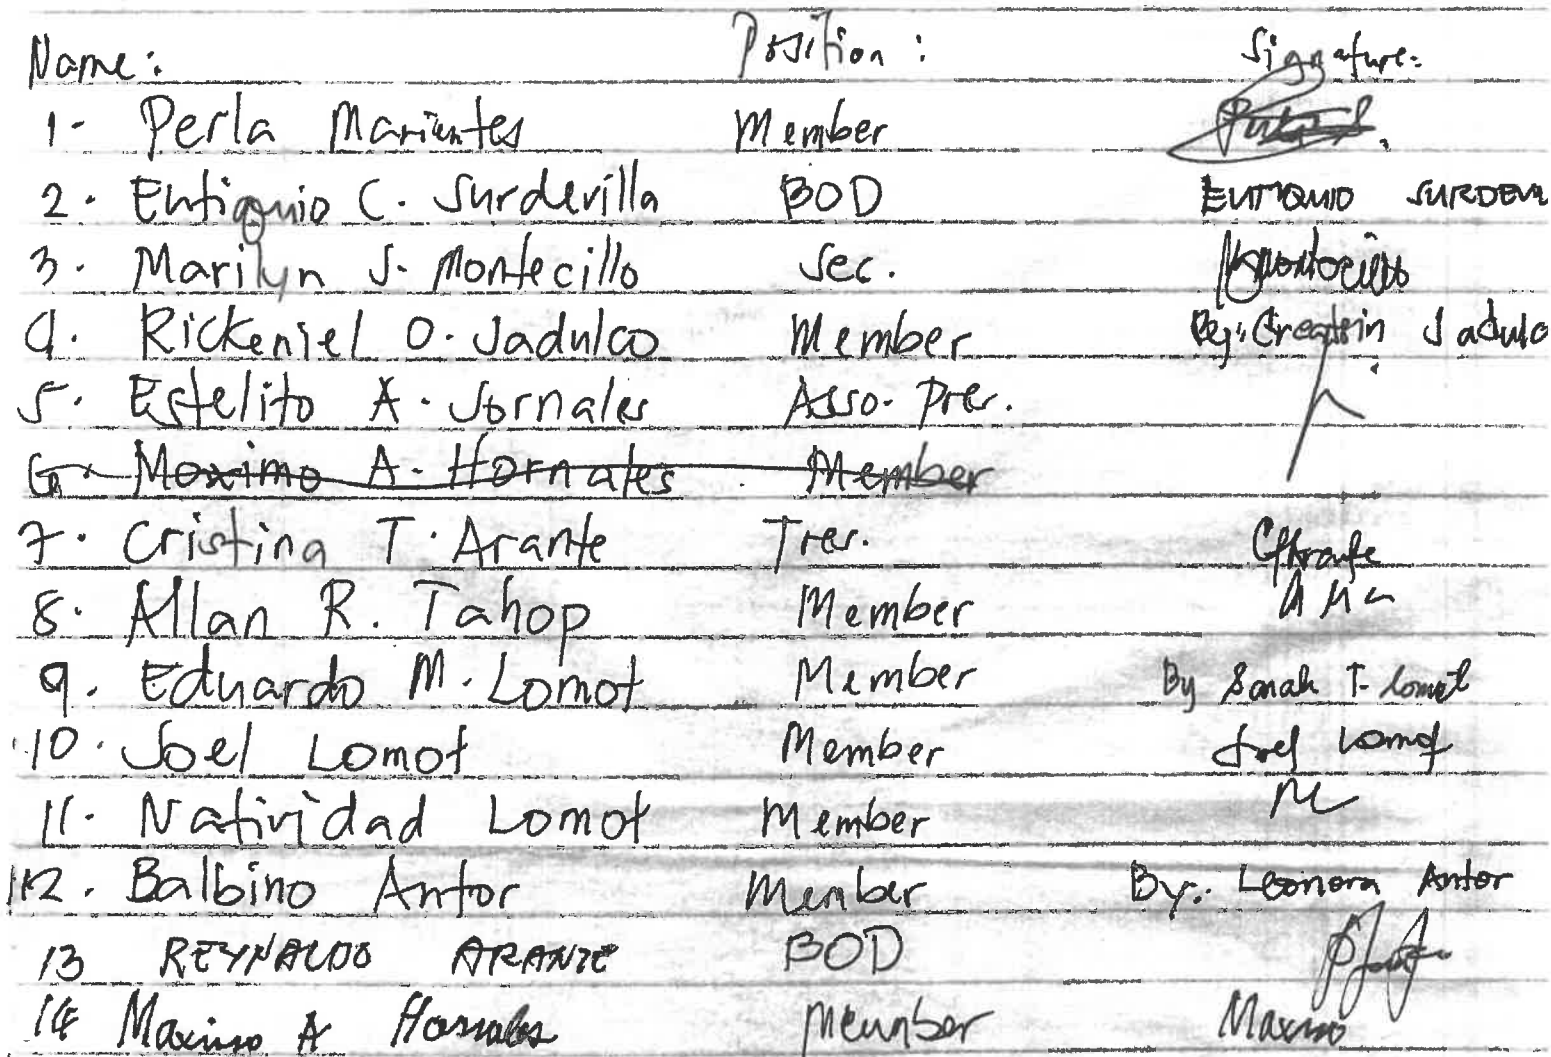 Name: Position: Signature:
1- Perla Marientes Member
2. Eutiquio C. Surdevilla BOD EUTIQUIO SURDEVI
3. Marilyn S. Montecillo Sec. Montecillo
4. Rickeniel O. Jadulco Member By: Jadulco
5. Estelito A. Jornales Asso. Pres.
6. Maximo A. Hornales Member
7. Cristina T. Arante Tres. CArante
8. Allan R. Tahop Member
9. Eduardo M. Lomot Member By Sarah T. Lomot
10. Joel Lomot Member Joel Lomot
11. Natividad Lomot Member
12. Balbino Antor Member By: Leonora Antor
13 REYNALDO ARANTE BOD
14 Maximo A Hornales Member Maximo